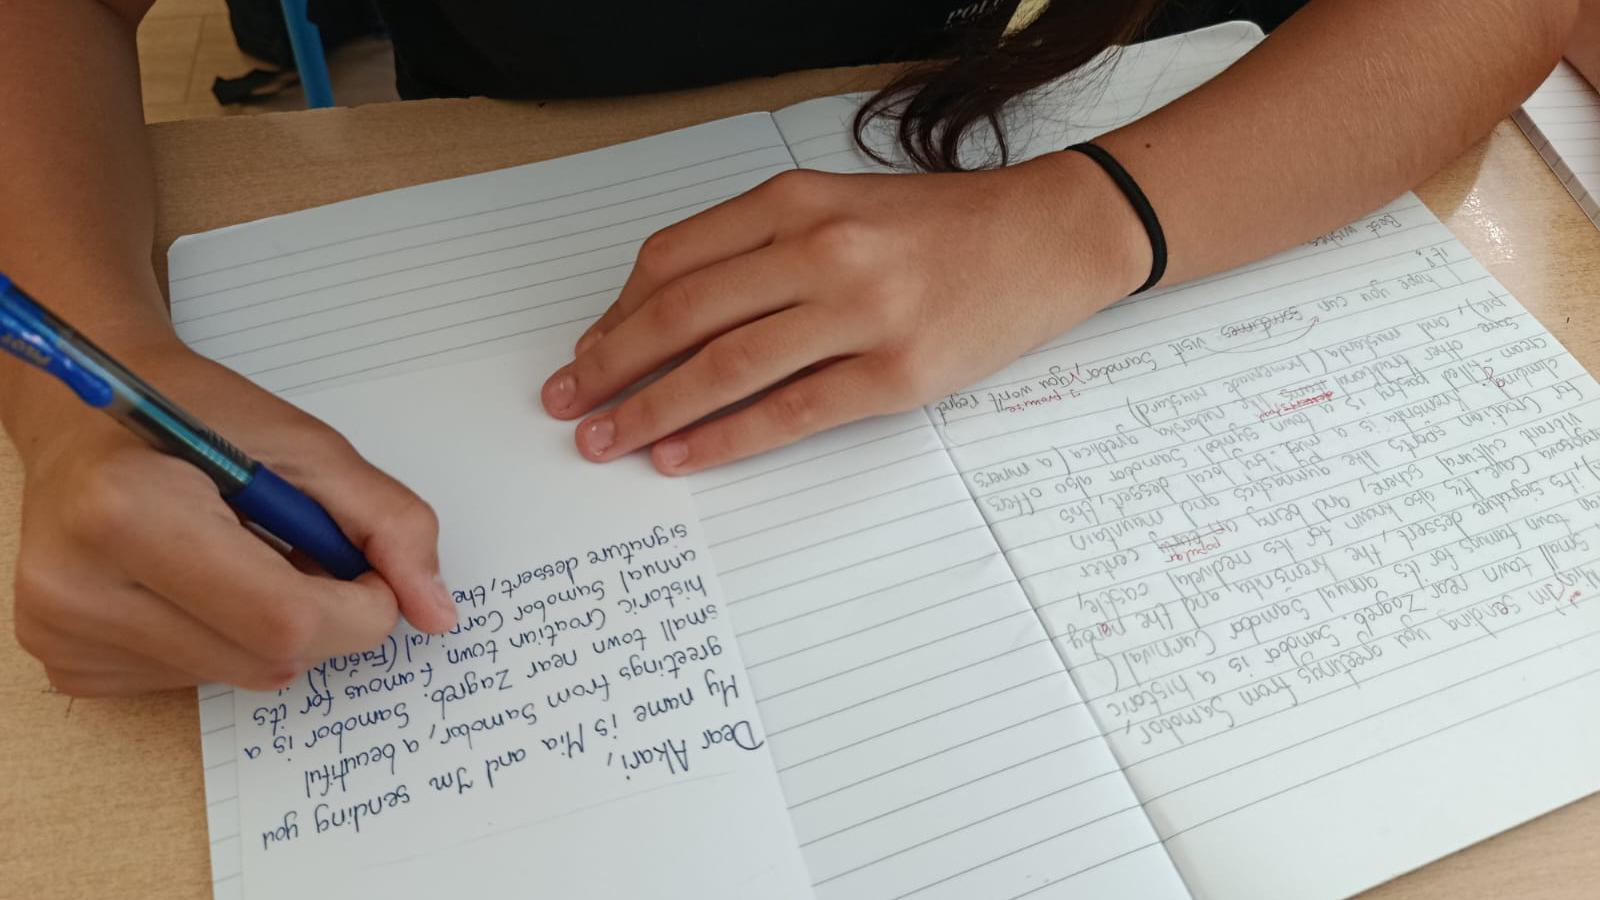 Dear Akari,
My name is Mia and I'm sending you
greetings from Samobor, a beautiful
small town near Zagreb. Samobor is a
historic Croatian town famous for its
annual Samobor Carnival (Fašnik)
signature dessert, the
sending you greetings from Samobor,
small town near Zagreb. Samobor is a historic
town famous for its annual Samobor Carnival (
its signature dessert, the kremšnita, and the nearby
Cave. It's also known for its medieval castle,
vibrant cultural scene, and being popular center
for Croatian sports the gymnastics and mountain
climbing. Kremšnita is a puff dessert, this
cream-filled pastry is a town symbol. Samobor also offers
some other traditional items like rudarska greblica (a miners
pie), and muštarda (homemade mustard)
I hope you can sometimes visit Samobor, you won't regret
I promise!
it!
Best wishes,
POLI
PILOT